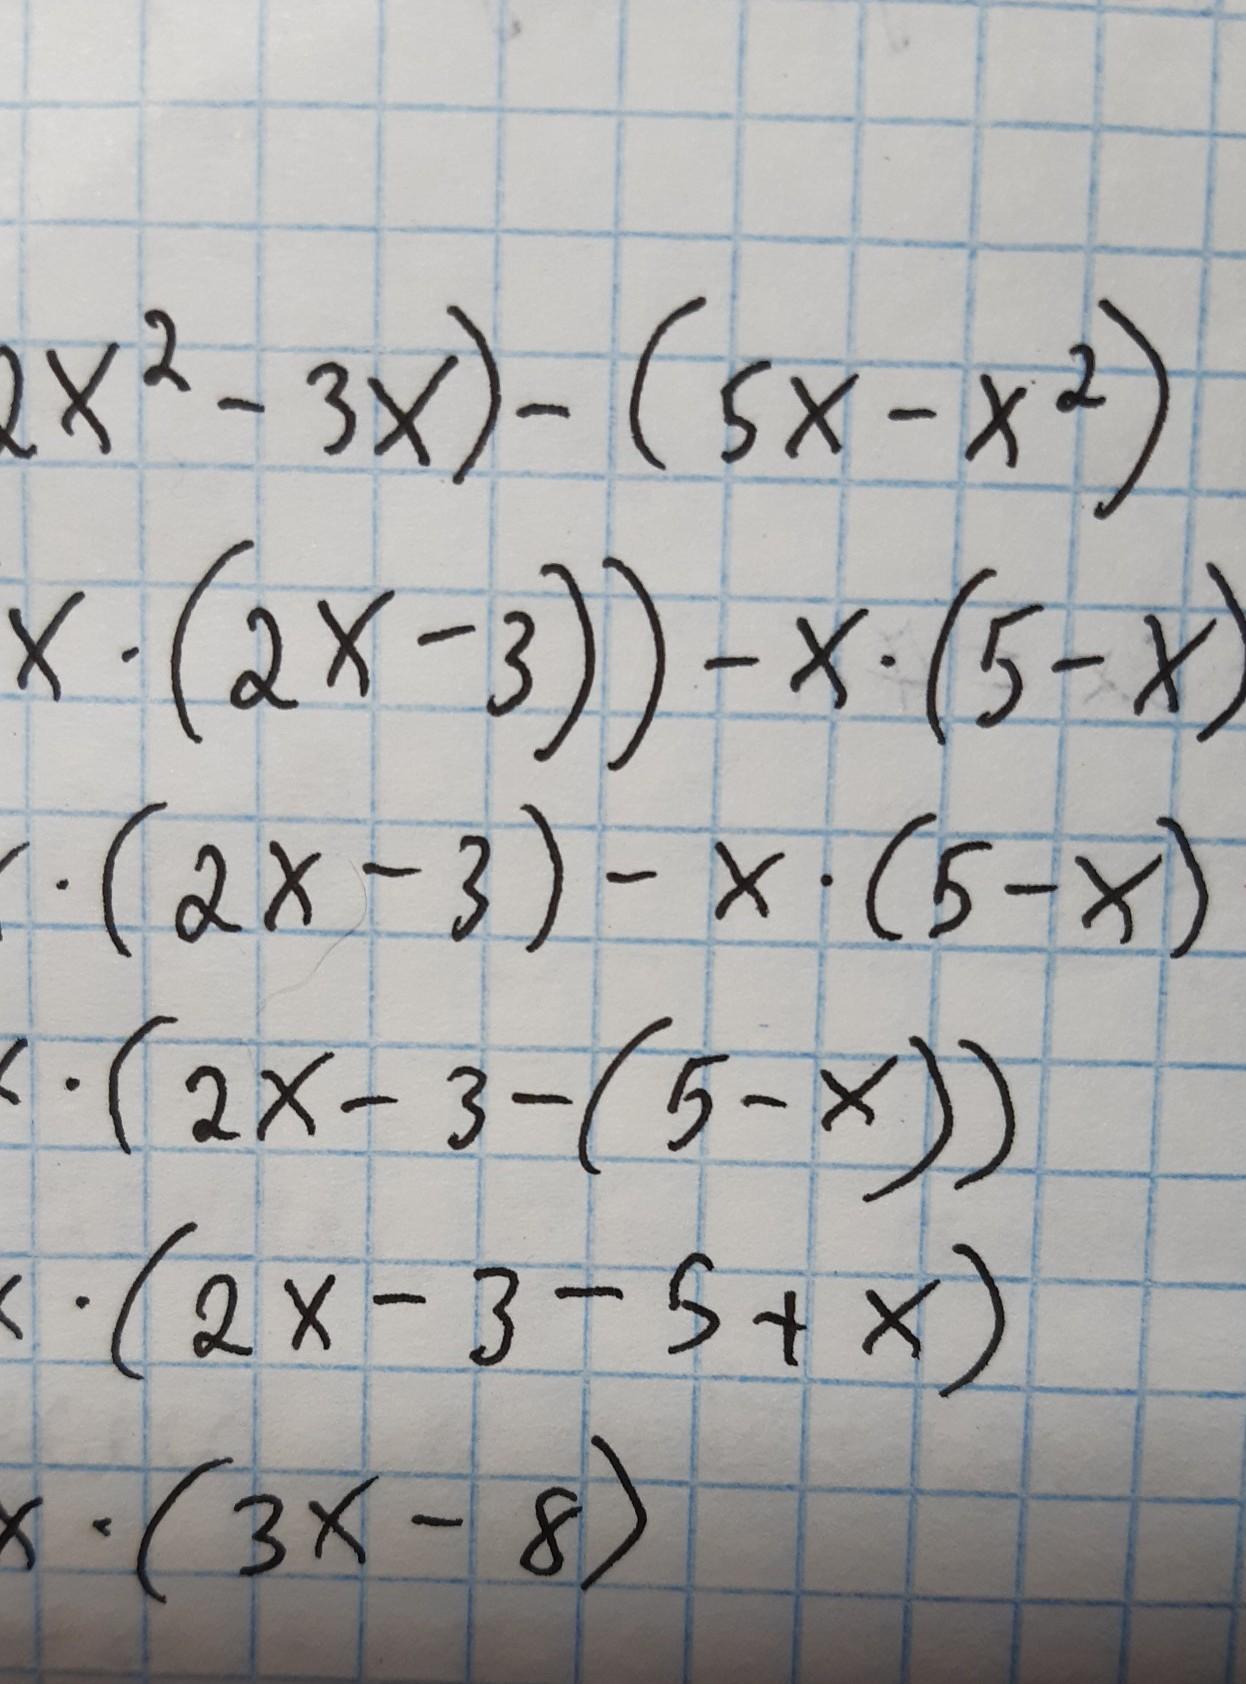 2x² - 3x) - (5x - x²)
x · (2x - 3)) - x · (5 - x)
x · (2x - 3) - x · (5 - x)
x · (2x - 3 - (5 - x))
x · (2x - 3 - 5 + x)
x · (3x - 8)